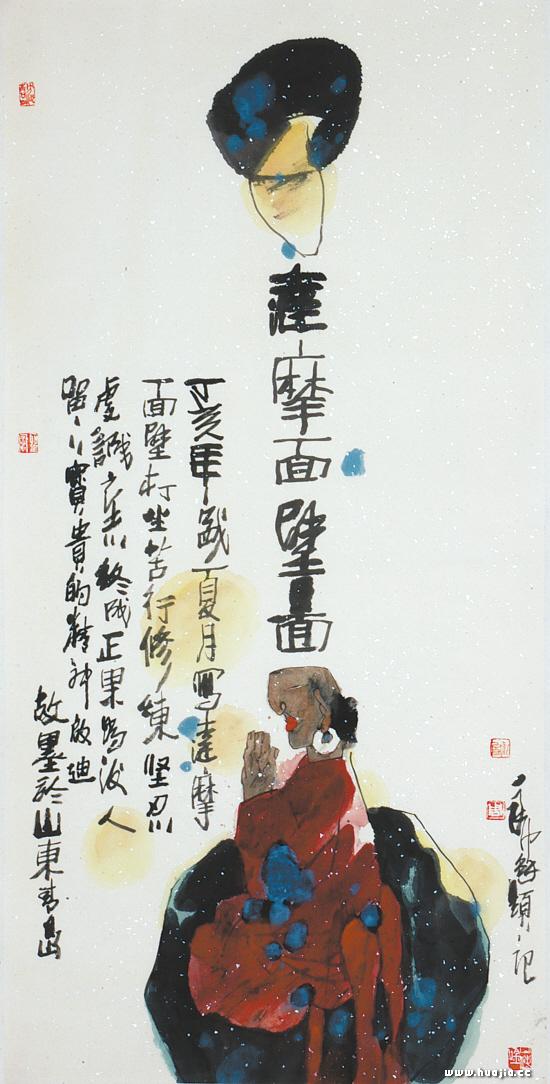 達摩面壁
丁亥年盛夏月寫達摩
面壁打坐苦行修練坚忍
虔誠之心終成正果後人
留下寶貴的精神啟迪
故墨於山東青島
記
www.huajia.cc